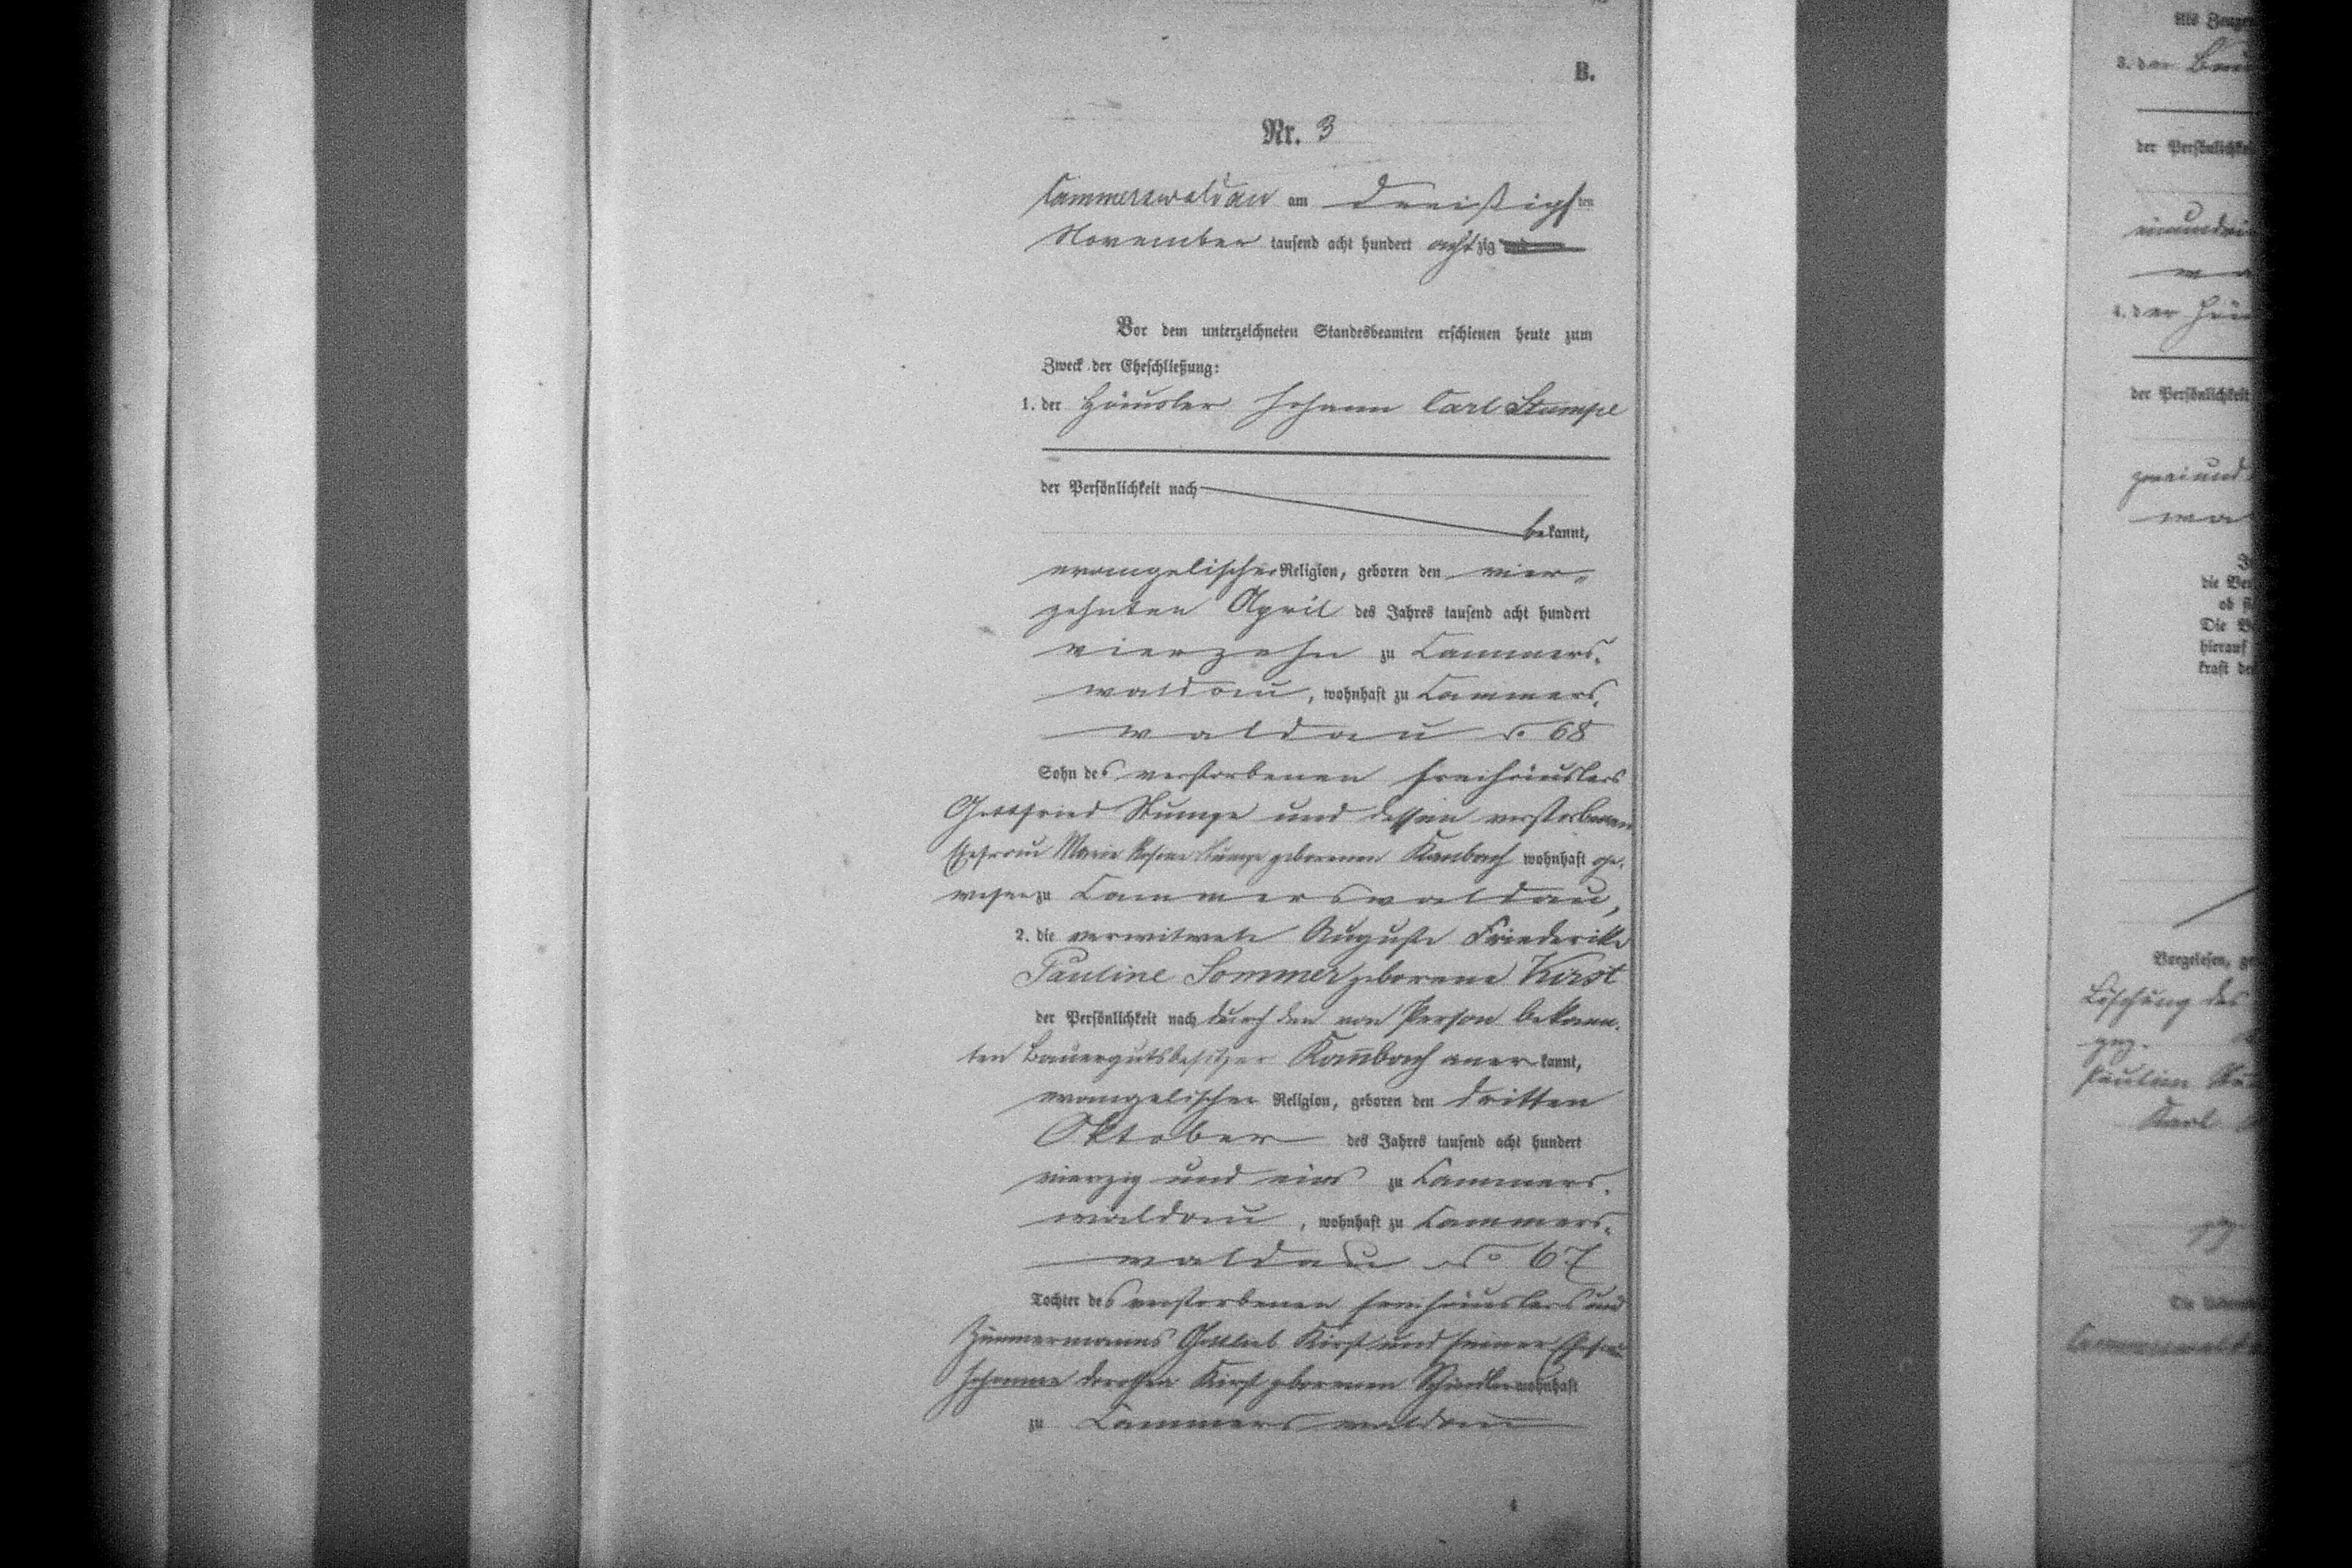 B.
Nr. 3
Cammerswaldau am dreißigsten
November tausend acht hundert achtzig und
Vor dem unterzeichneten Standesbeamten erschienen heute zum
Zweck der Eheschließung:
1. der Häusler Johann Carl Stumpe
der Persönlichkeit nach
bekannt,
evangelischer Religion, geboren den vier-
zehnten April des Jahres tausend acht hundert
vierzehn zu Cammers-
waldau, wohnhaft zu Cammers-
waldau No 68
Sohn des verstorbenen Freihäuslers
Gottfried Stumpe und dessen verstorbenen
Ehefrau Marie Rosine Stumpe geborenen Kambach wohnhaft ge-
wesen zu Cammerswaldau,
2. die verwitwete Auguste Friederike
Pauline Sommer geborene Kirst
der Persönlichkeit nach durch den von Person bekann-
ten Bauergutsbesitzer Kambach anerkannt,
evangelischer Religion, geboren den dritten
Oktober des Jahres tausend acht hundert
vierzig und eins zu Cammers-
waldau, wohnhaft zu Cammers-
waldau No 67
Tochter des verstorbenen Freihäuslers und
Zimmermanns Gottlieb Kirst und seiner Ehefrau
Johanne Dorothea Kirst geborenen Schindler wohnhaft
zu Cammerswaldau
4
Als Zeugen
3. der
der Persönlichkeit
4. der
der Persönlichkeit
zwei und
die
ob
Die
hierauf
kraft
Vorgelesen,
Löschung des
gez.
Pauline
Karl
Die